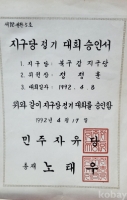 지구당 정기 대회 승인서
1. 지구당: 북구 갑 지구당
2. 위원장: 정 정 훈
3. 대회일자: 1992. 4. 8
위와 같이 지구당 정기 대회를 승인함
1992 년 4 월 17 일
민 주 자 유 당
총재 노 태 우
kobay